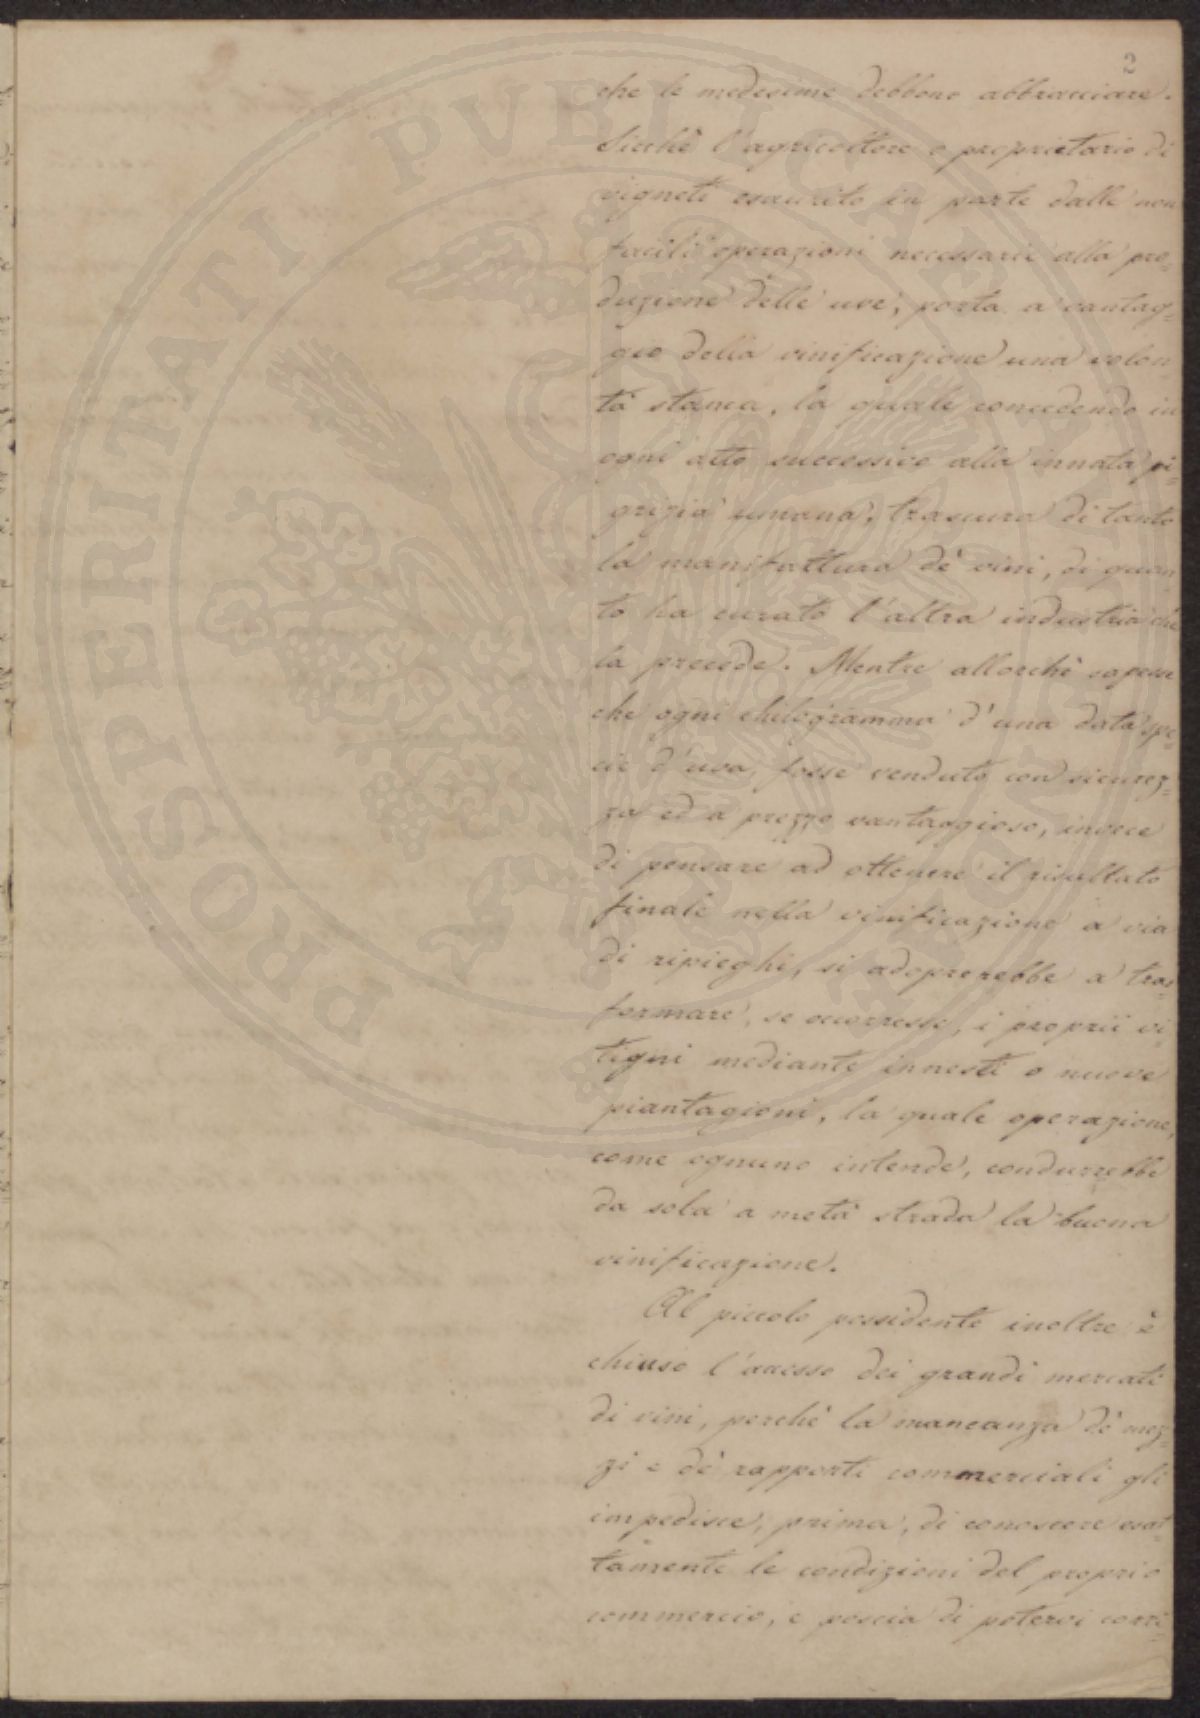 2
che le medesime debbono abbracciare.
Sicchè l'agricoltore o proprietario di
vigneti esaurito in parte dalle non
facili operazioni necessarie alla pro=
duzione delle uve, porta a vantag=
gio della vinificazione una volon=
tà stanca, la quale concedendo in
ogni atto successivo alla innata pi=
grizia umana, trascura di tanto
la manifattura de' vini, di quan=
to ha curato l'altra industria che
la precede. Mentre allorchè sapesse
che ogni chilogramma d'una data spe=
cie d'uva, fosse venduto con sicurez=
za ed a prezzo vantaggioso, invece
di pensare ad ottenere il risultato
finale nella vinificazione a via
di ripieghi, si adoprerebbe a tras=
formare, se occorresse, i proprii vi=
tigni mediante innesti o nuove
piantagioni, la quale operazione,
come ognuno intende, condurrebbe
da sola a metà strada la buona
vinificazione.
Al piccolo possidente inoltre è
chiuso l'accesso dei grandi mercati
di vini, perchè la mancanza de' mez=
zi e de' rapporti commerciali gli
impedisce, prima, di conoscere esat=
tamente le condizioni del proprio
commercio, e poscia di potervi corri=
PROSPERITATI PUBLICAE